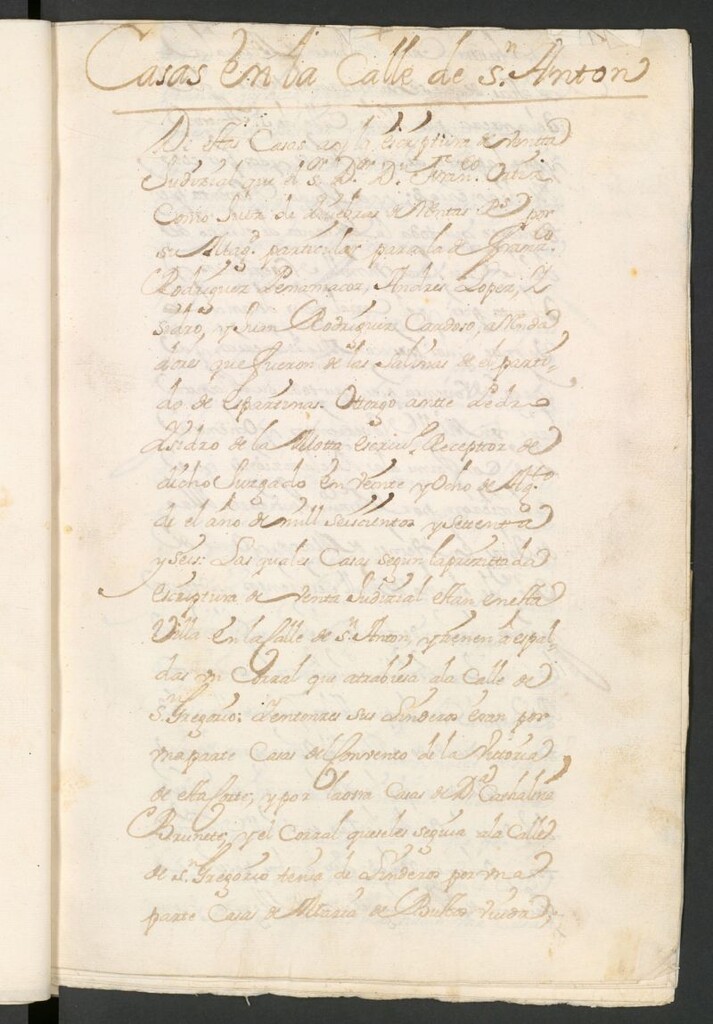 Casas en la Calle de s.n Anton
De estas Casas ay la escriptura de Venta
Judizial que el s.or D.or D.n Fran.co
Como Juez de de Rentas R.s por
s. Mag.d particular para la de Fran.co
Rodriguez Penamacor, Andres Lopez, Y
sidro, y Simn Rodriguez Cardoso,
dores que fueron de las Salinas de el parti-
do de espartinas. Ottorgo antte Pedro
Ysidro de la Motta escriu.o Receptor de
dicho Juzgado en Veinte y Ocho de Ag.to
de el año de mill seiscientos y settenta
y seis: Las quales Casas segun la precittada
escriptura de Venta Judizial estan en esta
Villa en la Calle de s.n Anton, y tienen a espal-
das un Corral que atrabiesa a la Calle de
s.n Gregorio: Y entonzes sus Linderos eran por
vna parte Casas de el Convento de la Victoria
de esta Corte, y por la otra Casas de D.a Cathalina
Brunete, y el Corral que se les seguia a la Calle
de s.n Gregorio tenia de Linderos por vna
parte Casas de Maria de Bustos